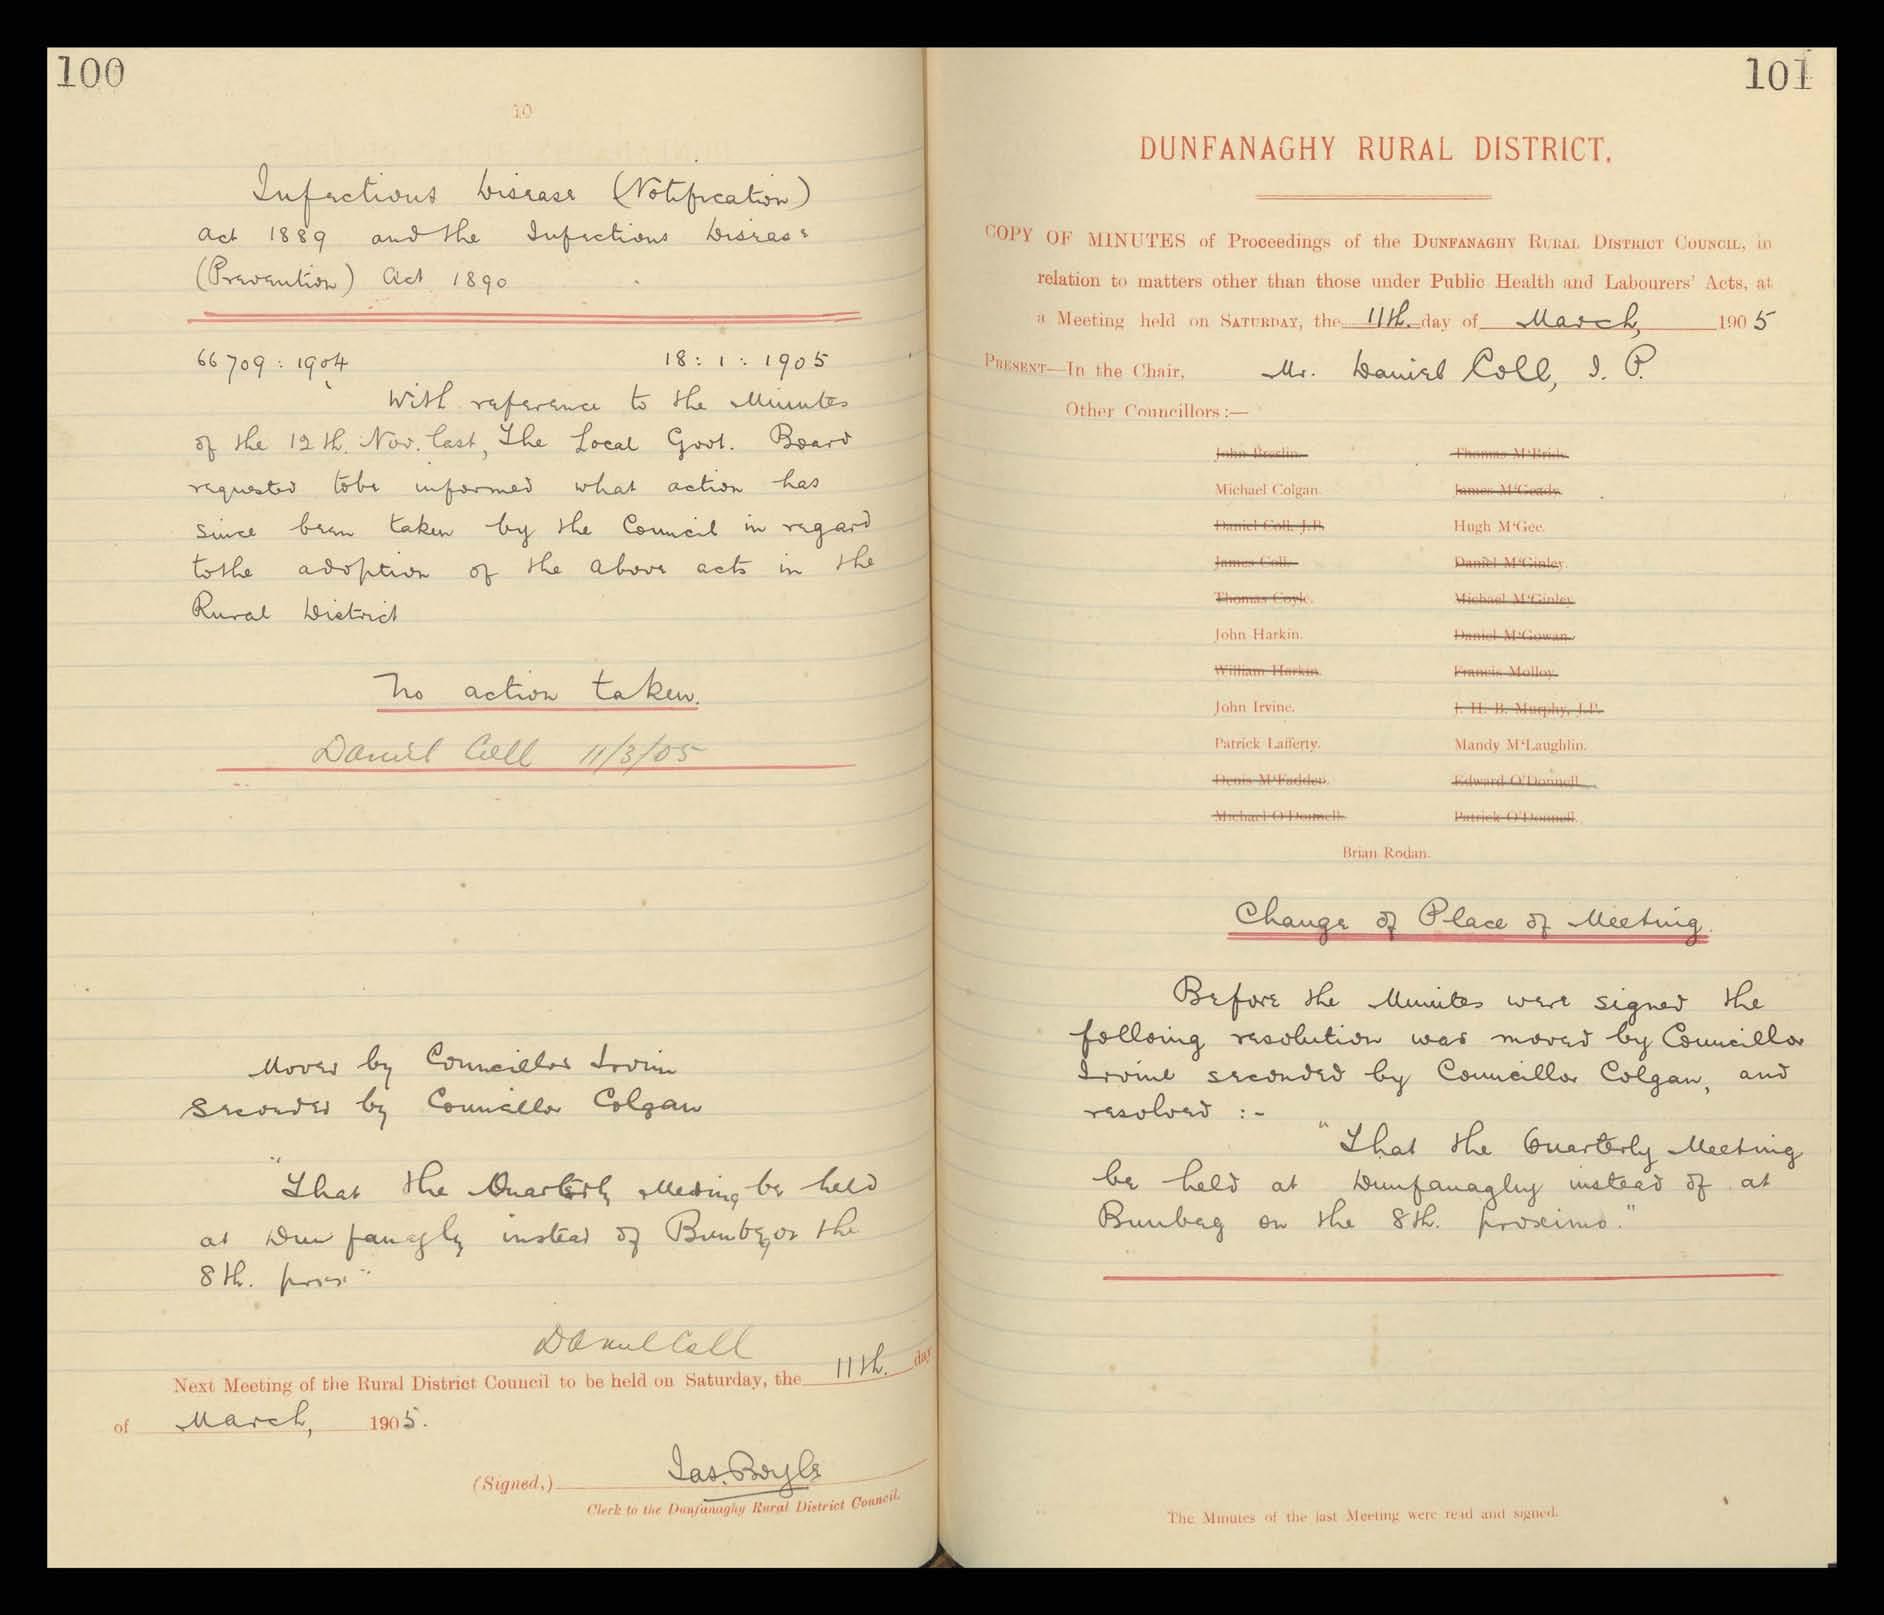 100
10
Infectious Disease (Notification)
Act 1889 and the Infectious Disease
(Prevention) Act 1890
66709 : 1904 18 : 1 : 1905
With reference to the Minutes
of the 12th. Nov. last, The Local Govt. Board
requested to be informed what action has
since been taken by the Council in regard
to the adoption of the above acts in the
Rural District
No action taken.
Daniel Coll 11/3/05
Moved by Councillor Irvine
Seconded by Councillor Colgan
"That the Quarterly Meeting be held
at Dunfanaghy instead of Bunbeg on the
8th. prox"
Daniel Coll
Next Meeting of the Rural District Council to be held on Saturday, the 11th. day
of March, 1905.
(Signed,) Jas. Boyle
Clerk to the Dunfanaghy Rural District Council.
101
DUNFANAGHY RURAL DISTRICT.
COPY OF MINUTES of Proceedings of the DUNFANAGHY RURAL DISTRICT COUNCIL, in
relation to matters other than those under Public Health and Labourers' Acts, at
a Meeting held on SATURDAY, the 11th. day of March, 1905
PRESENT—In the Chair, Mr. Daniel Coll, J. P.
Other Councillors :—
John Breslin. Thomas M'Bride.
Michael Colgan. James M'Geady.
Daniel Coll, J.P. Hugh M'Gee.
James Coll. Daniel M'Ginley.
Thomas Coyle. Michael M'Ginley.
John Harkin. Daniel M'Gowan.
William Harkin. Francis Molloy.
John Irvine. J. H. B. Murphy, J.P.
Patrick Lafferty. Mandy M'Laughlin.
Denis M'Fadden. Edward O'Donnell.
Michael O'Donnell. Patrick O'Donnell.
Brian Rodan.
Change of Place of Meeting.
Before the Minutes were signed the
folloing resolution was moved by Councillor
Irvine seconded by Councillor Colgan, and
resolved :-
"That the Quarterly Meeting
be held at Dunfanaghy instead of at
Bunbeg on the 8th. proximo."
The Minutes of the last Meeting were read and signed.